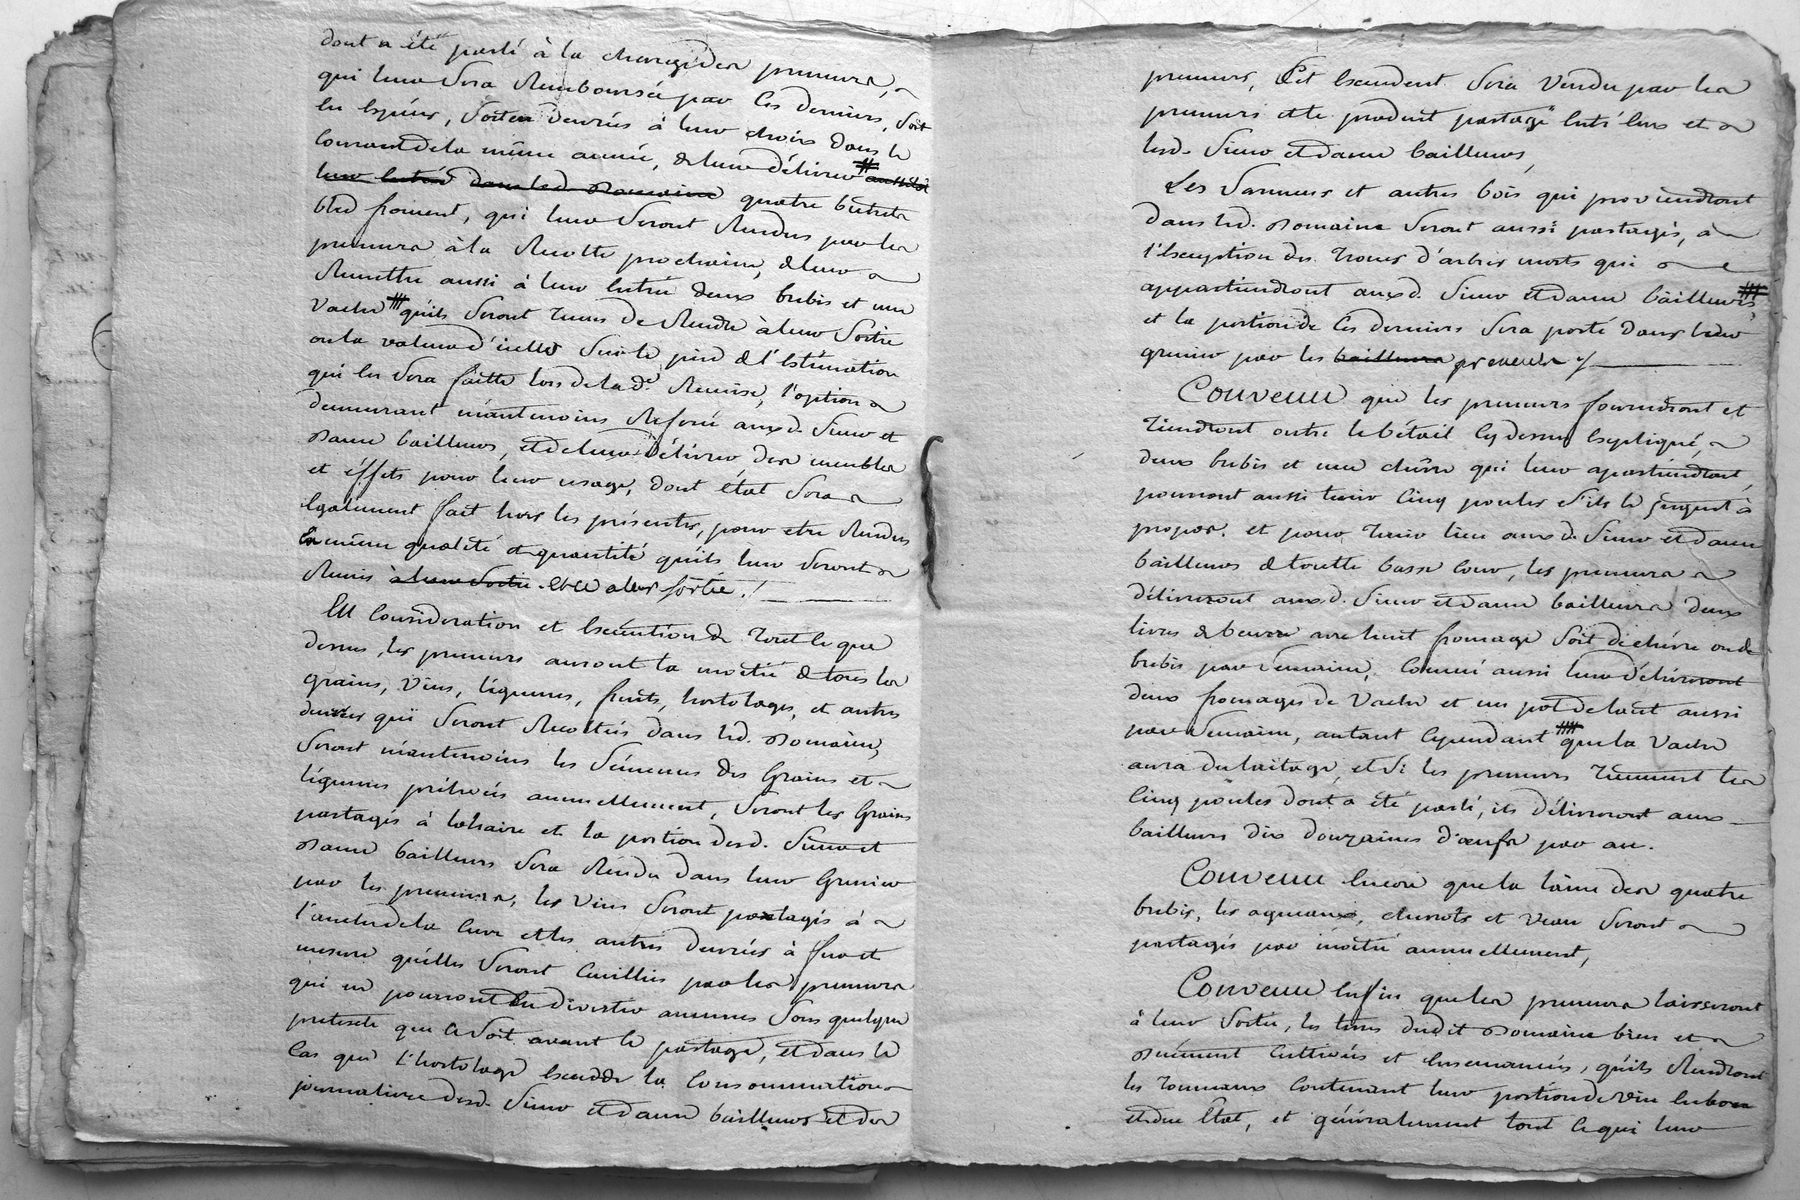 dont a été parlé à la charge des preneurs,
qui leur sera remboursée par les derniers, soit
en espéces, soit en denrées à leur choix dans le
courant de la même année, de leur délivrer aussitôt
leur entrée dans led. domaine quatre
bled froment, qui leur seront rendus par les
preneurs à la recolte prochaine, de leur
remettre aussi à leur entrée deux brebis et une
vache qu'ils seront tenus de rendre à leur sortie
ou la valeur d'icelles sur le pied de l'estimation
qui en sera faitte lors de lad.e remise, l'option
demeurant néantmoins reservé auxd. sieur et
dame bailleurs, et de leur délivrer des meubles
et éffets pour leur usage, dont état sera
également fait hors les présentes, pour etre rendus
en même qualité et quantité qu'ils leur seront
remis à leur sortie et ce a leur sortie./.
En considération et exécution de tout ce que
dessus, les preneurs auront la moitié de tous les
grains, vins, légumes, fruits, hortolages, et autres
denrées qui seront recoltés dans led. domaine,
seront néantmoins les semences des grains et
légumes prélevés annuellement, seront les grains
partagés à l'haire et la portion desd. sieur et
dame bailleurs sera rendu dans leur grenier
par les preneurs, les vins seront partagés à
l'anche de la cuve et les autres denrées à fur et
mesure qu'elles seront cueillies par les preneurs
qui ne pourront en divertir aucunes sous quelque
pretexte que ce soit avant le partage, et dans le
cas que l'hortolage excedde la consommation
journalière desd. sieur et dame bailleurs et des
preneurs, cet excendent sera vendu par les
preneurs et le produit partagé entr'eux et
lesd. sieur et dame bailleurs,
Les sarmens et autres bois qui proviendront
dans led. domaine seront aussi partagés, à
l'exception des troncs d'arbres morts qui
appartiendront auxd. sieur et dame bailleurs
et la portion de ces derniers sera porté dans leur
grenier par les bailleurs preneurs ./.
Convenu que les preneurs fourniront et
tiendront outre le bétail cy dessus expliqué,
deux brebis et une chévre qui leur apartiendront,
pourront aussi tenir cinq poules s'ils le jugent à
propos. et pour tenir lieu auxd. sieur et dame
bailleurs de toutte basse cour, les preneurs
délivreront auxd. sieur et dame bailleurs deux
livres de beurre une huit fromage soit de chévre ou de
brebis par semaine, comme aussi leur délivreront
deux fromages de vache et un pot de lait aussi
par semaine, autant cependant que la vache
aura du laitage, et si les preneurs tiennent les
cinq poules dont a été parlé, ils délivreront aux
bailleurs dix douzaines d'œufs par an.
Convenu encore que la laine des quatre
brebis, les agneaux, chevrots et veau seront
partagés par moitié annuellement,
Convenu enfin que les preneurs laisseront
à leur sortie, les terres dudit domaine bien et
duement cultivés et ensemancés, qu'ils rendront
les tonneaux contenant leur portion de vin en bon
et due état, et généralement tout ce qui leur